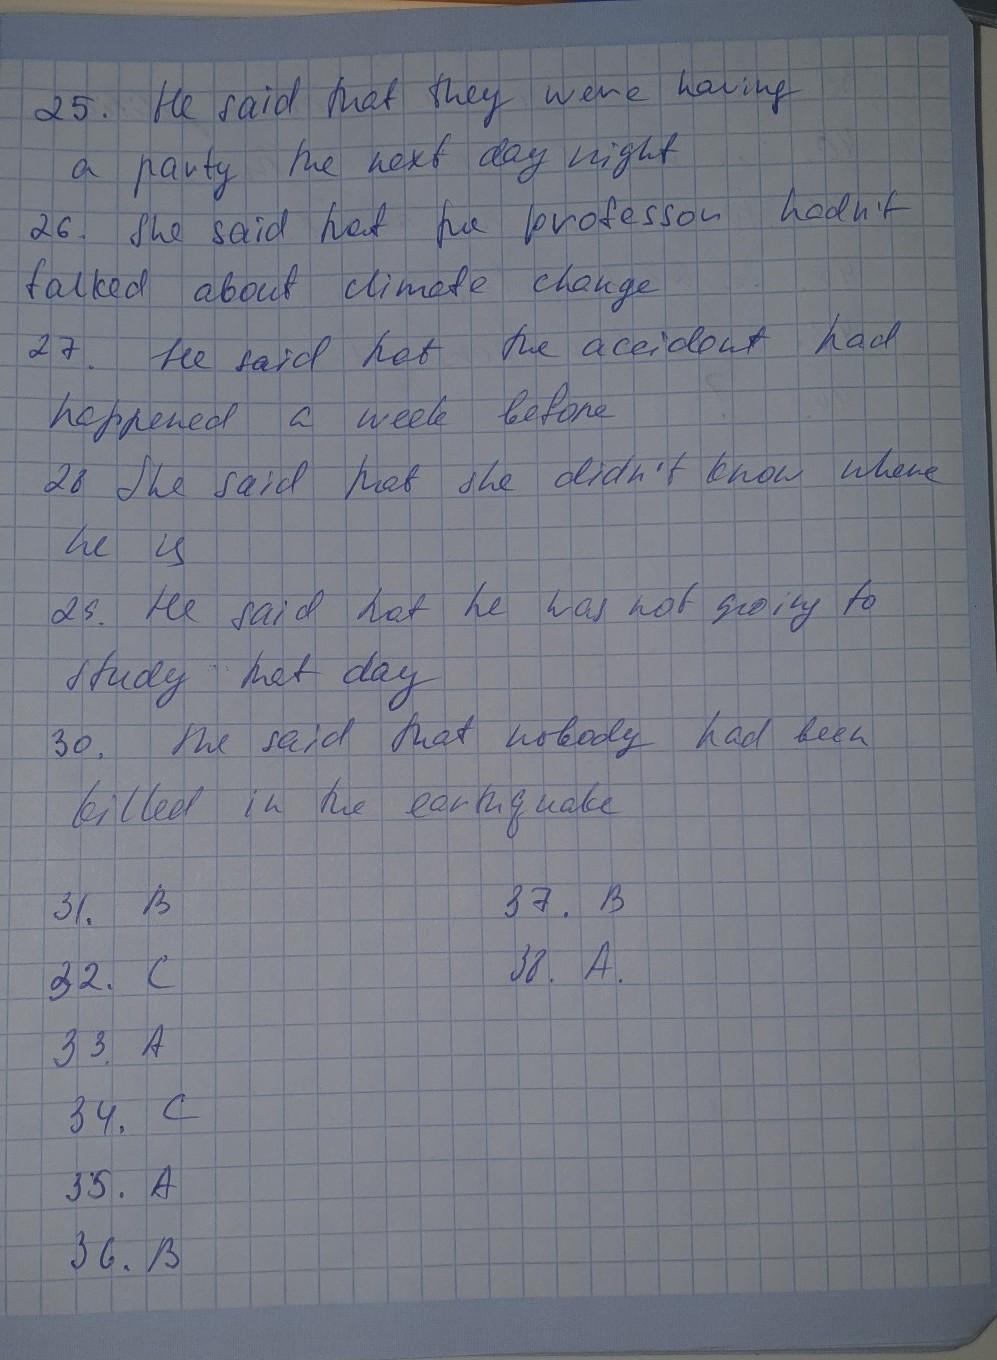 25. He said that they were having
a party the next day night
26. She said that the professor hadn't
talked about climate change
27. He said that the accident had
happened a week before
28 She said that she didn't know where
he is
29. He said that he was not going to
study that day
30. She said that nobody had been
killed in the earthquake
31. B 37. B
32. C 38. A.
33. A
34. C
35. A
36. B